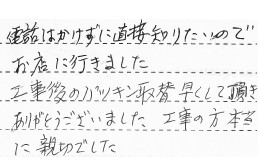 電話はかけずに直接知りたいので
お店に行きました
工事後のパッキン取替早くして頂き
ありがとうございました 工事の方本当
に親切でした